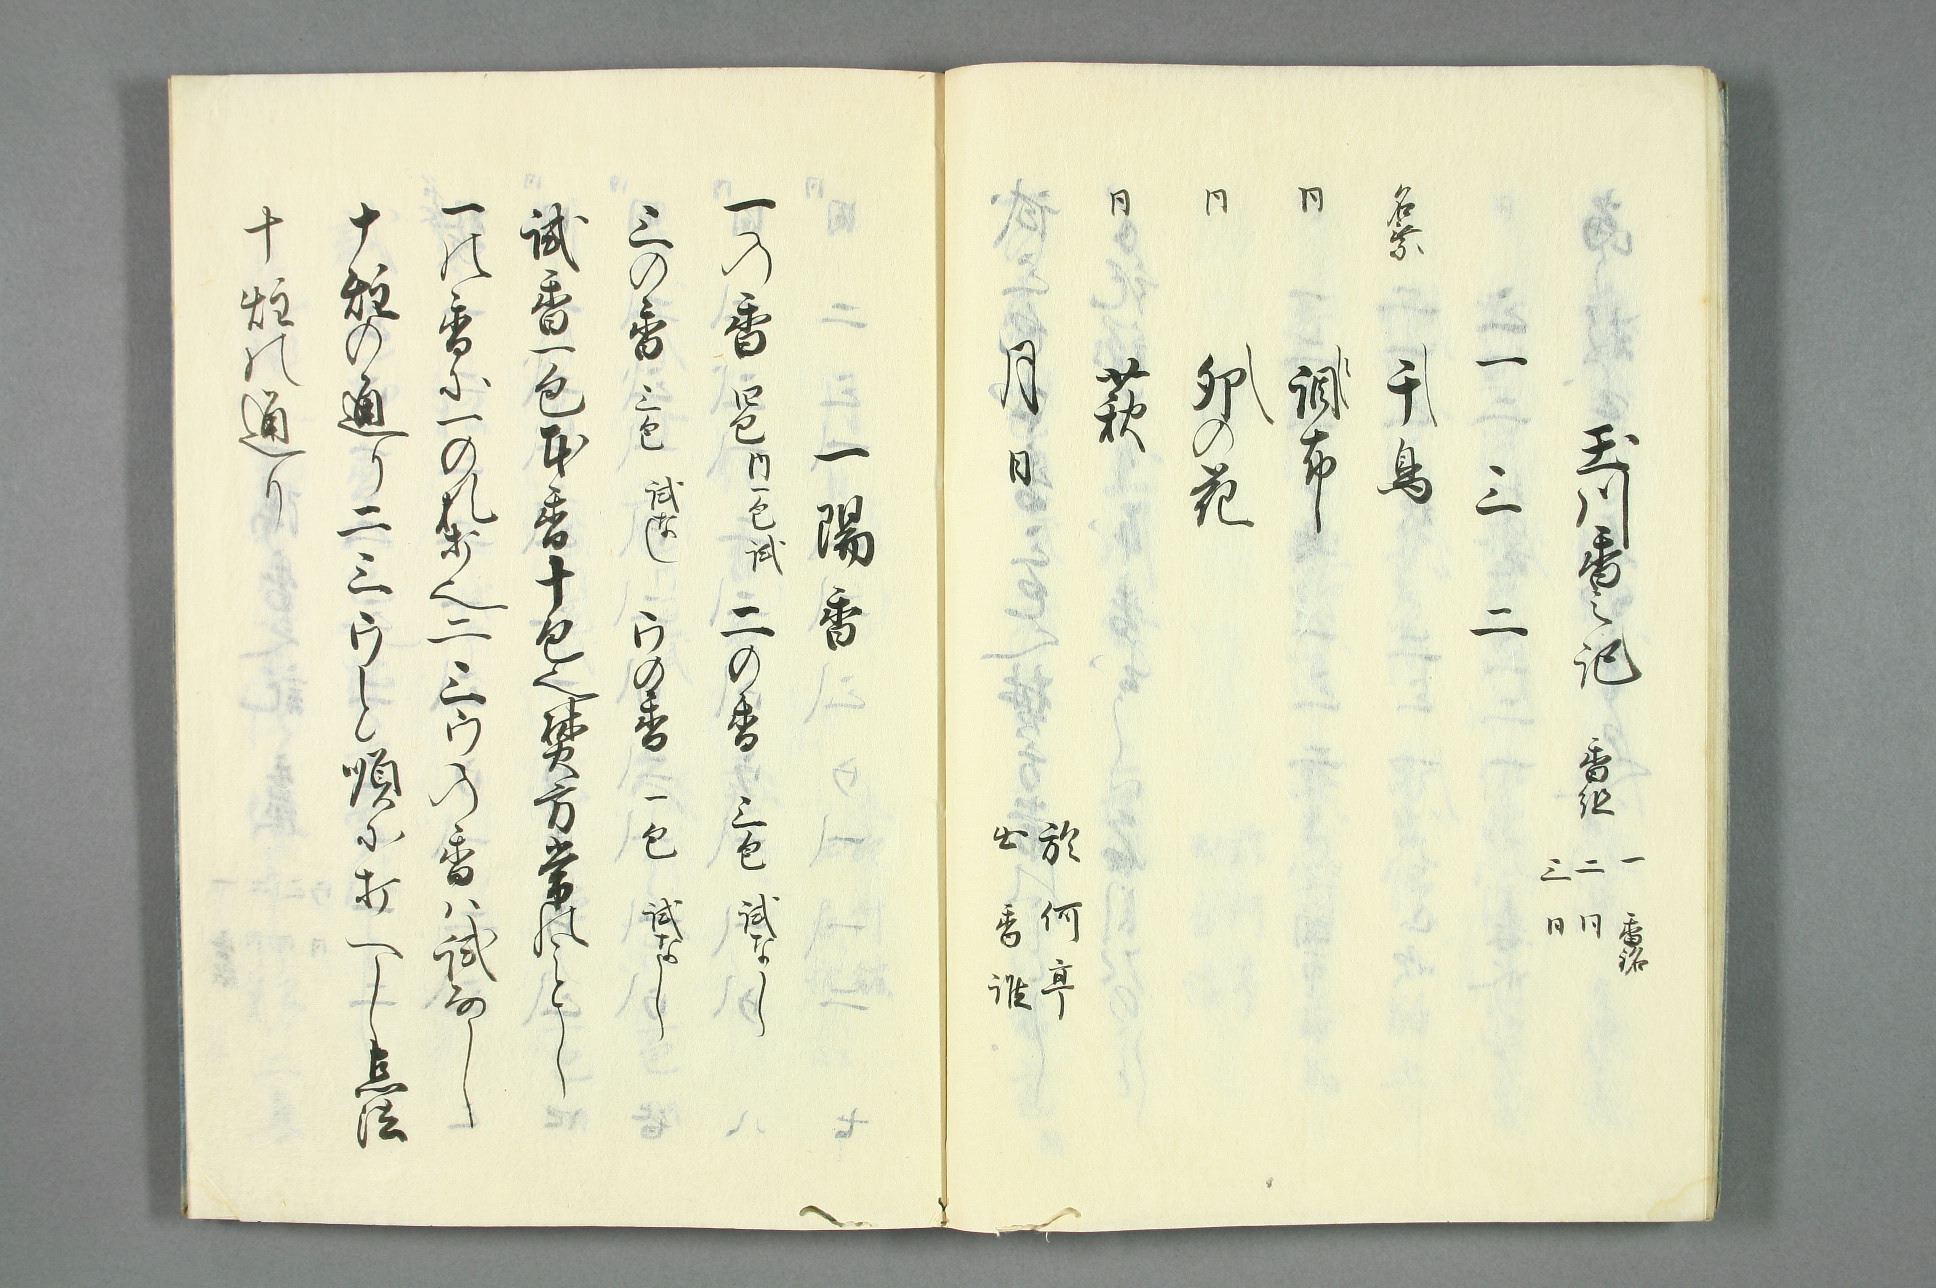 玉川香之記　香組　一　香銘
二　同
三　同
一　三　二
名乗　千鳥
同　調布
同　卯の花
同　萩
月　日　於何亭
出香誰
一陽香
一の香　四包　内一包試　二の香　三包　試なし
三の香　三包　試なし　ウの香　一包　試なし
試香一包聞香十包也焚方常のことし
一の香に一の札打也二三ウの香ハ試なし
十炷の通り二三ウしと順に打へし点法
十炷の通り